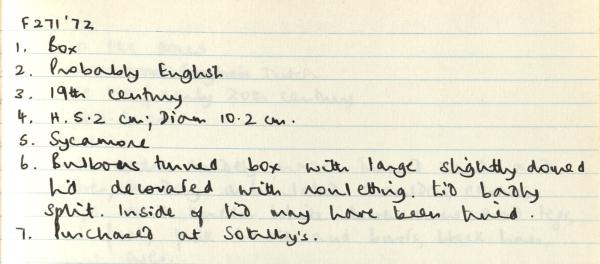 F271'72
1. Box
2. Probably English
3. 19th century
4. H. 5.2 cm; Diam 10.2 cm.
5. Sycamore
6. Bulbous turned box with large slightly domed
lid decorated with rouletting. Lid badly
split. Inside of lid may have been turned
7. Purchased at Sotheby's.